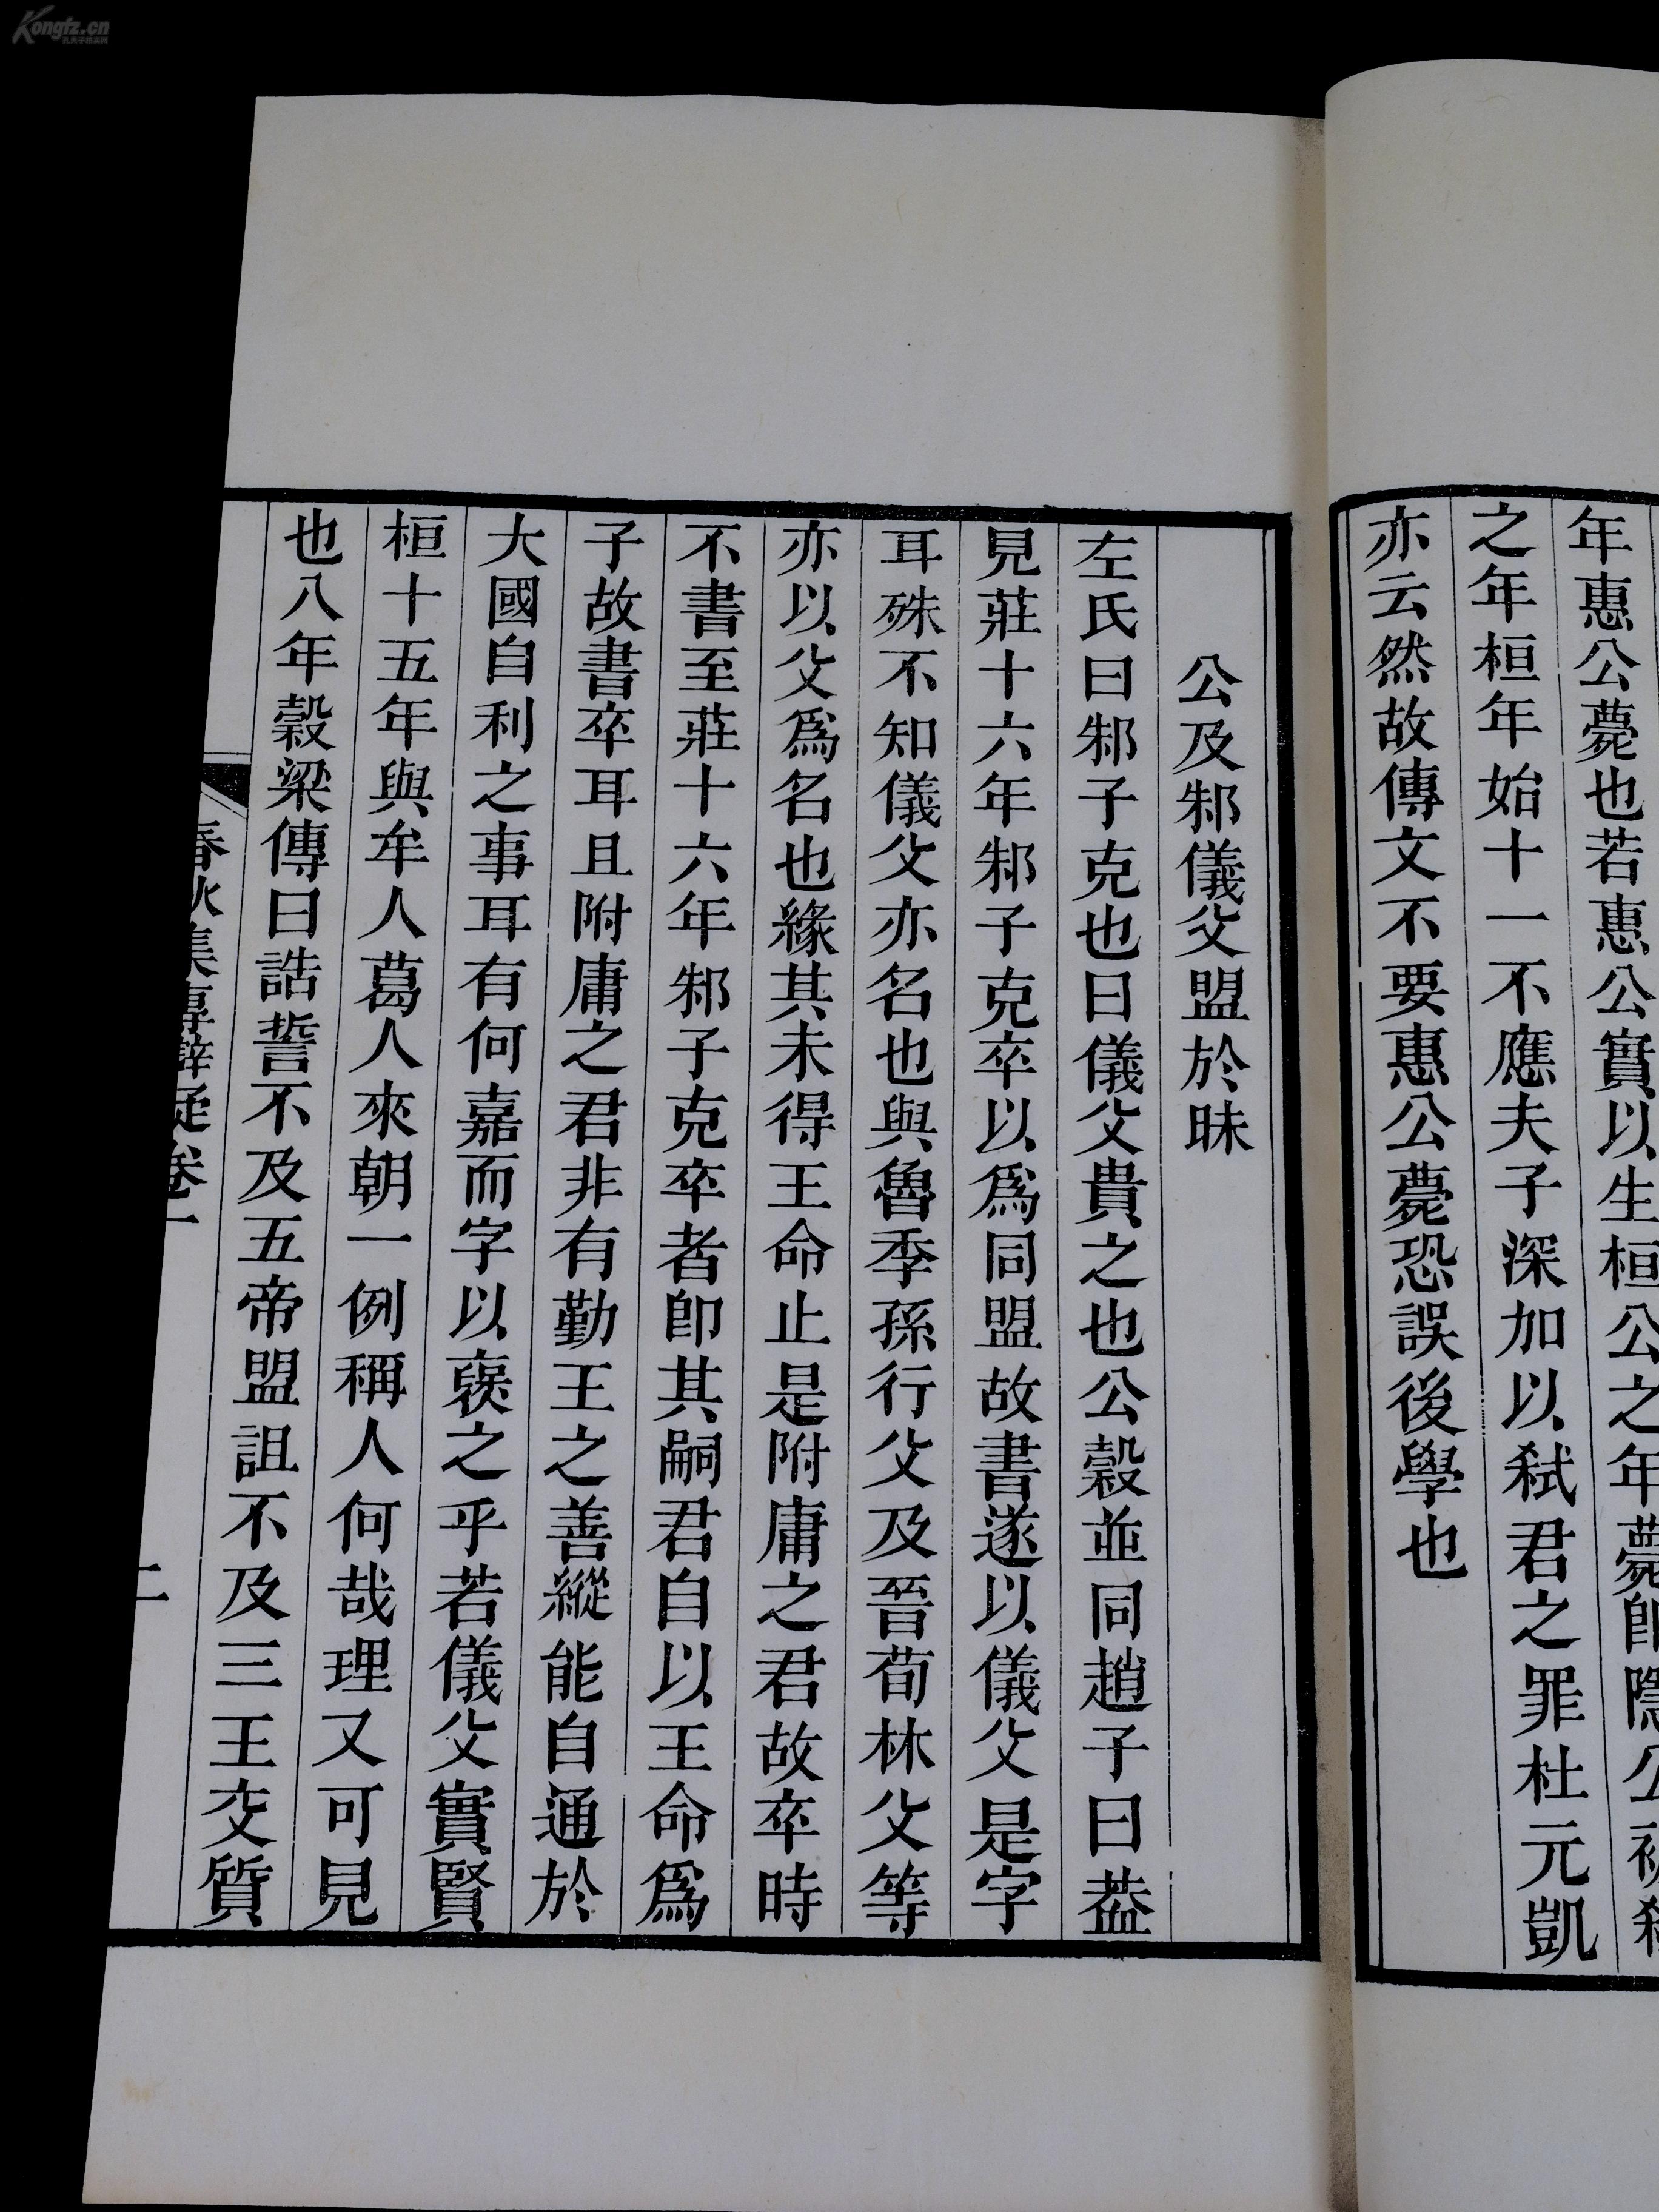 年惠公薨也若惠公實以生桓公之年薨卽隱公
之年桓年始十一不應夫子深加以弑君之罪杜元凱
亦云然故傳文不要惠公薨恐誤後學也
公及邾儀父盟於眛
左氏曰邾子克也曰儀父貴之也公穀並同趙子曰葢
見莊十六年邾子克卒以爲同盟故書遂以儀父是字
耳殊不知儀父亦名也與魯季孫行父及晉荀林父等
亦以父爲名也緣其未得王命止是附庸之君故卒時
不書至莊十六年邾子克卒者卽其嗣君自以王命爲
子故書卒耳且附庸之君非有勤王之善縱能自通於
大國自利之事耳有何嘉而字以襃之乎若儀父實賢
桓十五年與牟人葛人來朝一例稱人何哉理又可見
也八年穀梁傳曰誥誓不及五帝盟詛不及三王交質
春秋集傳辯疑卷一
二
Kongfz.cn